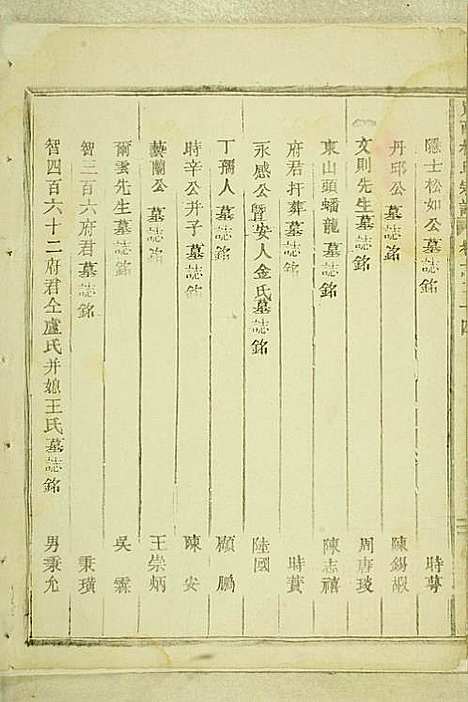 隱士松如公墓誌銘 時蓴
丹邱公墓誌銘 陳錫嘏
文則先生墓誌銘 周唐琰
東山頭蟠龍墓誌銘 陳志禧
府君并葬墓誌銘 時蕡
永感公暨安人金氏墓誌銘 陸國
丁孺人墓誌銘 顧鵬
時辛公并子墓誌銘 陳安
藝蘭公墓誌銘 王崇炳
爾雲先生墓誌銘 吳霖
智三百六府君墓誌銘 秉璜
智四百六十二府君仝盧氏并娘王氏墓誌銘 男秉允